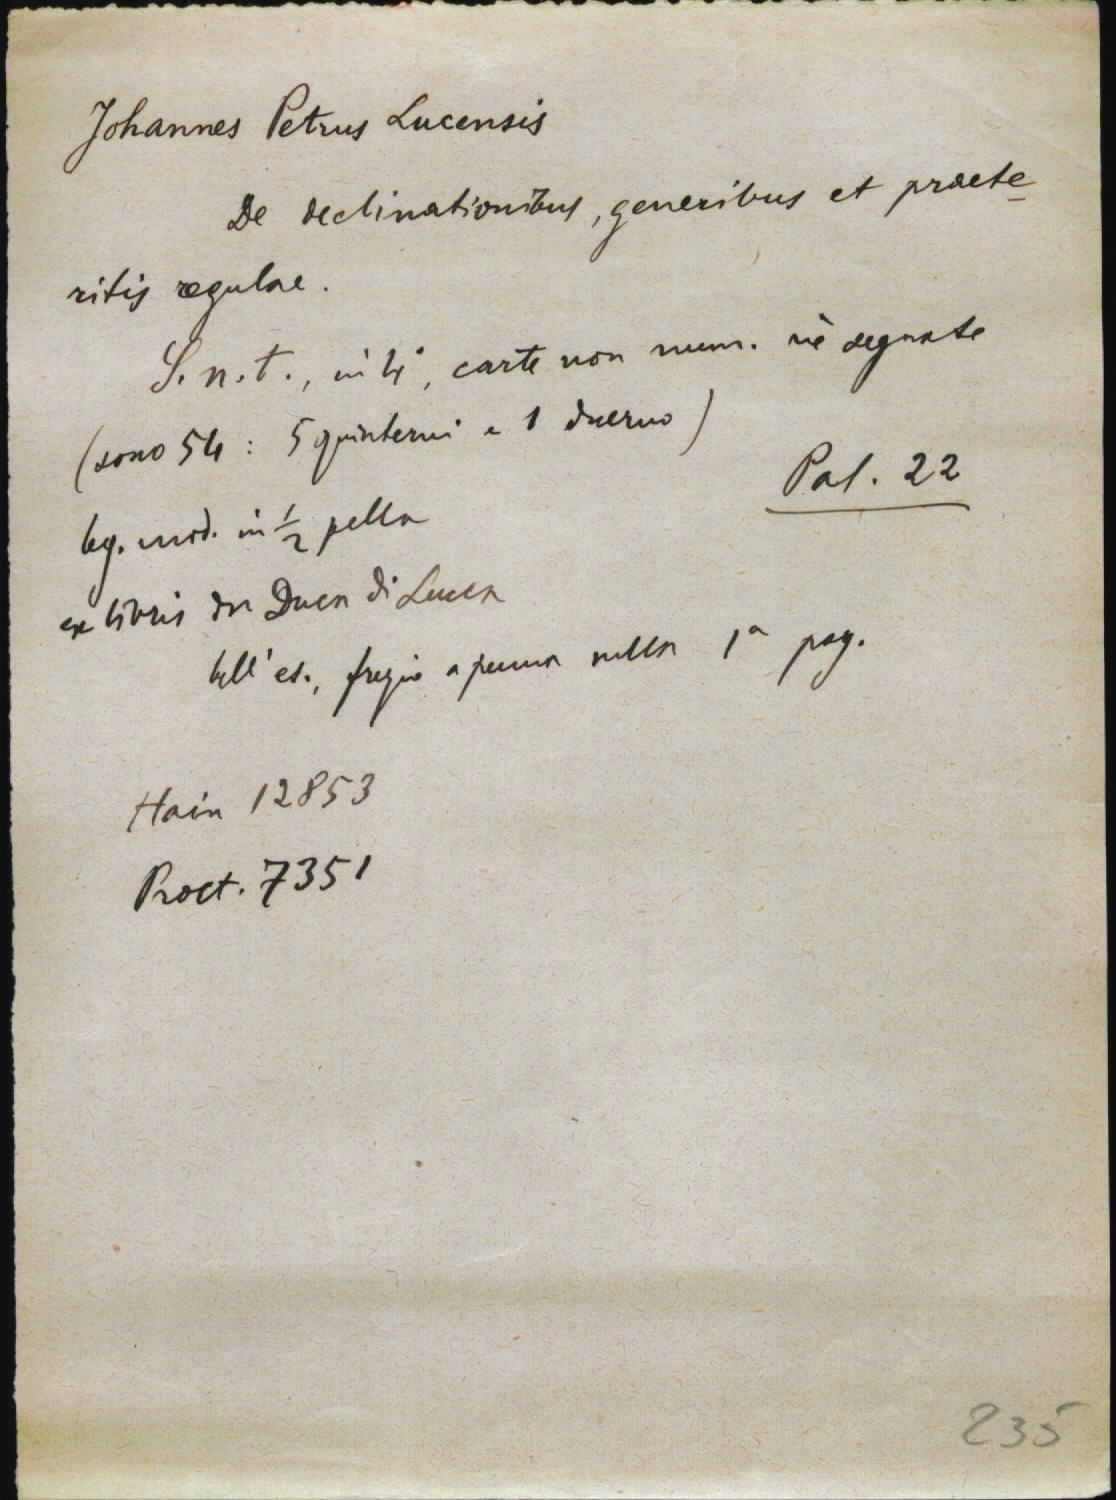 Johannes Petrus Lucensis
De declinationibus, generibus et praete-
ritis regulae.
S. n. t., in 4°, carte non num. nè segnate
(sono 54 : 5 quinterni e 1 duerno)
Pal. 22
leg. mod. in 1/2 pelle
ex libris del Duca di Lucca
bell' es., fregio a penna nella 1ª pag.
Hain 12853
Proct. 7351
235